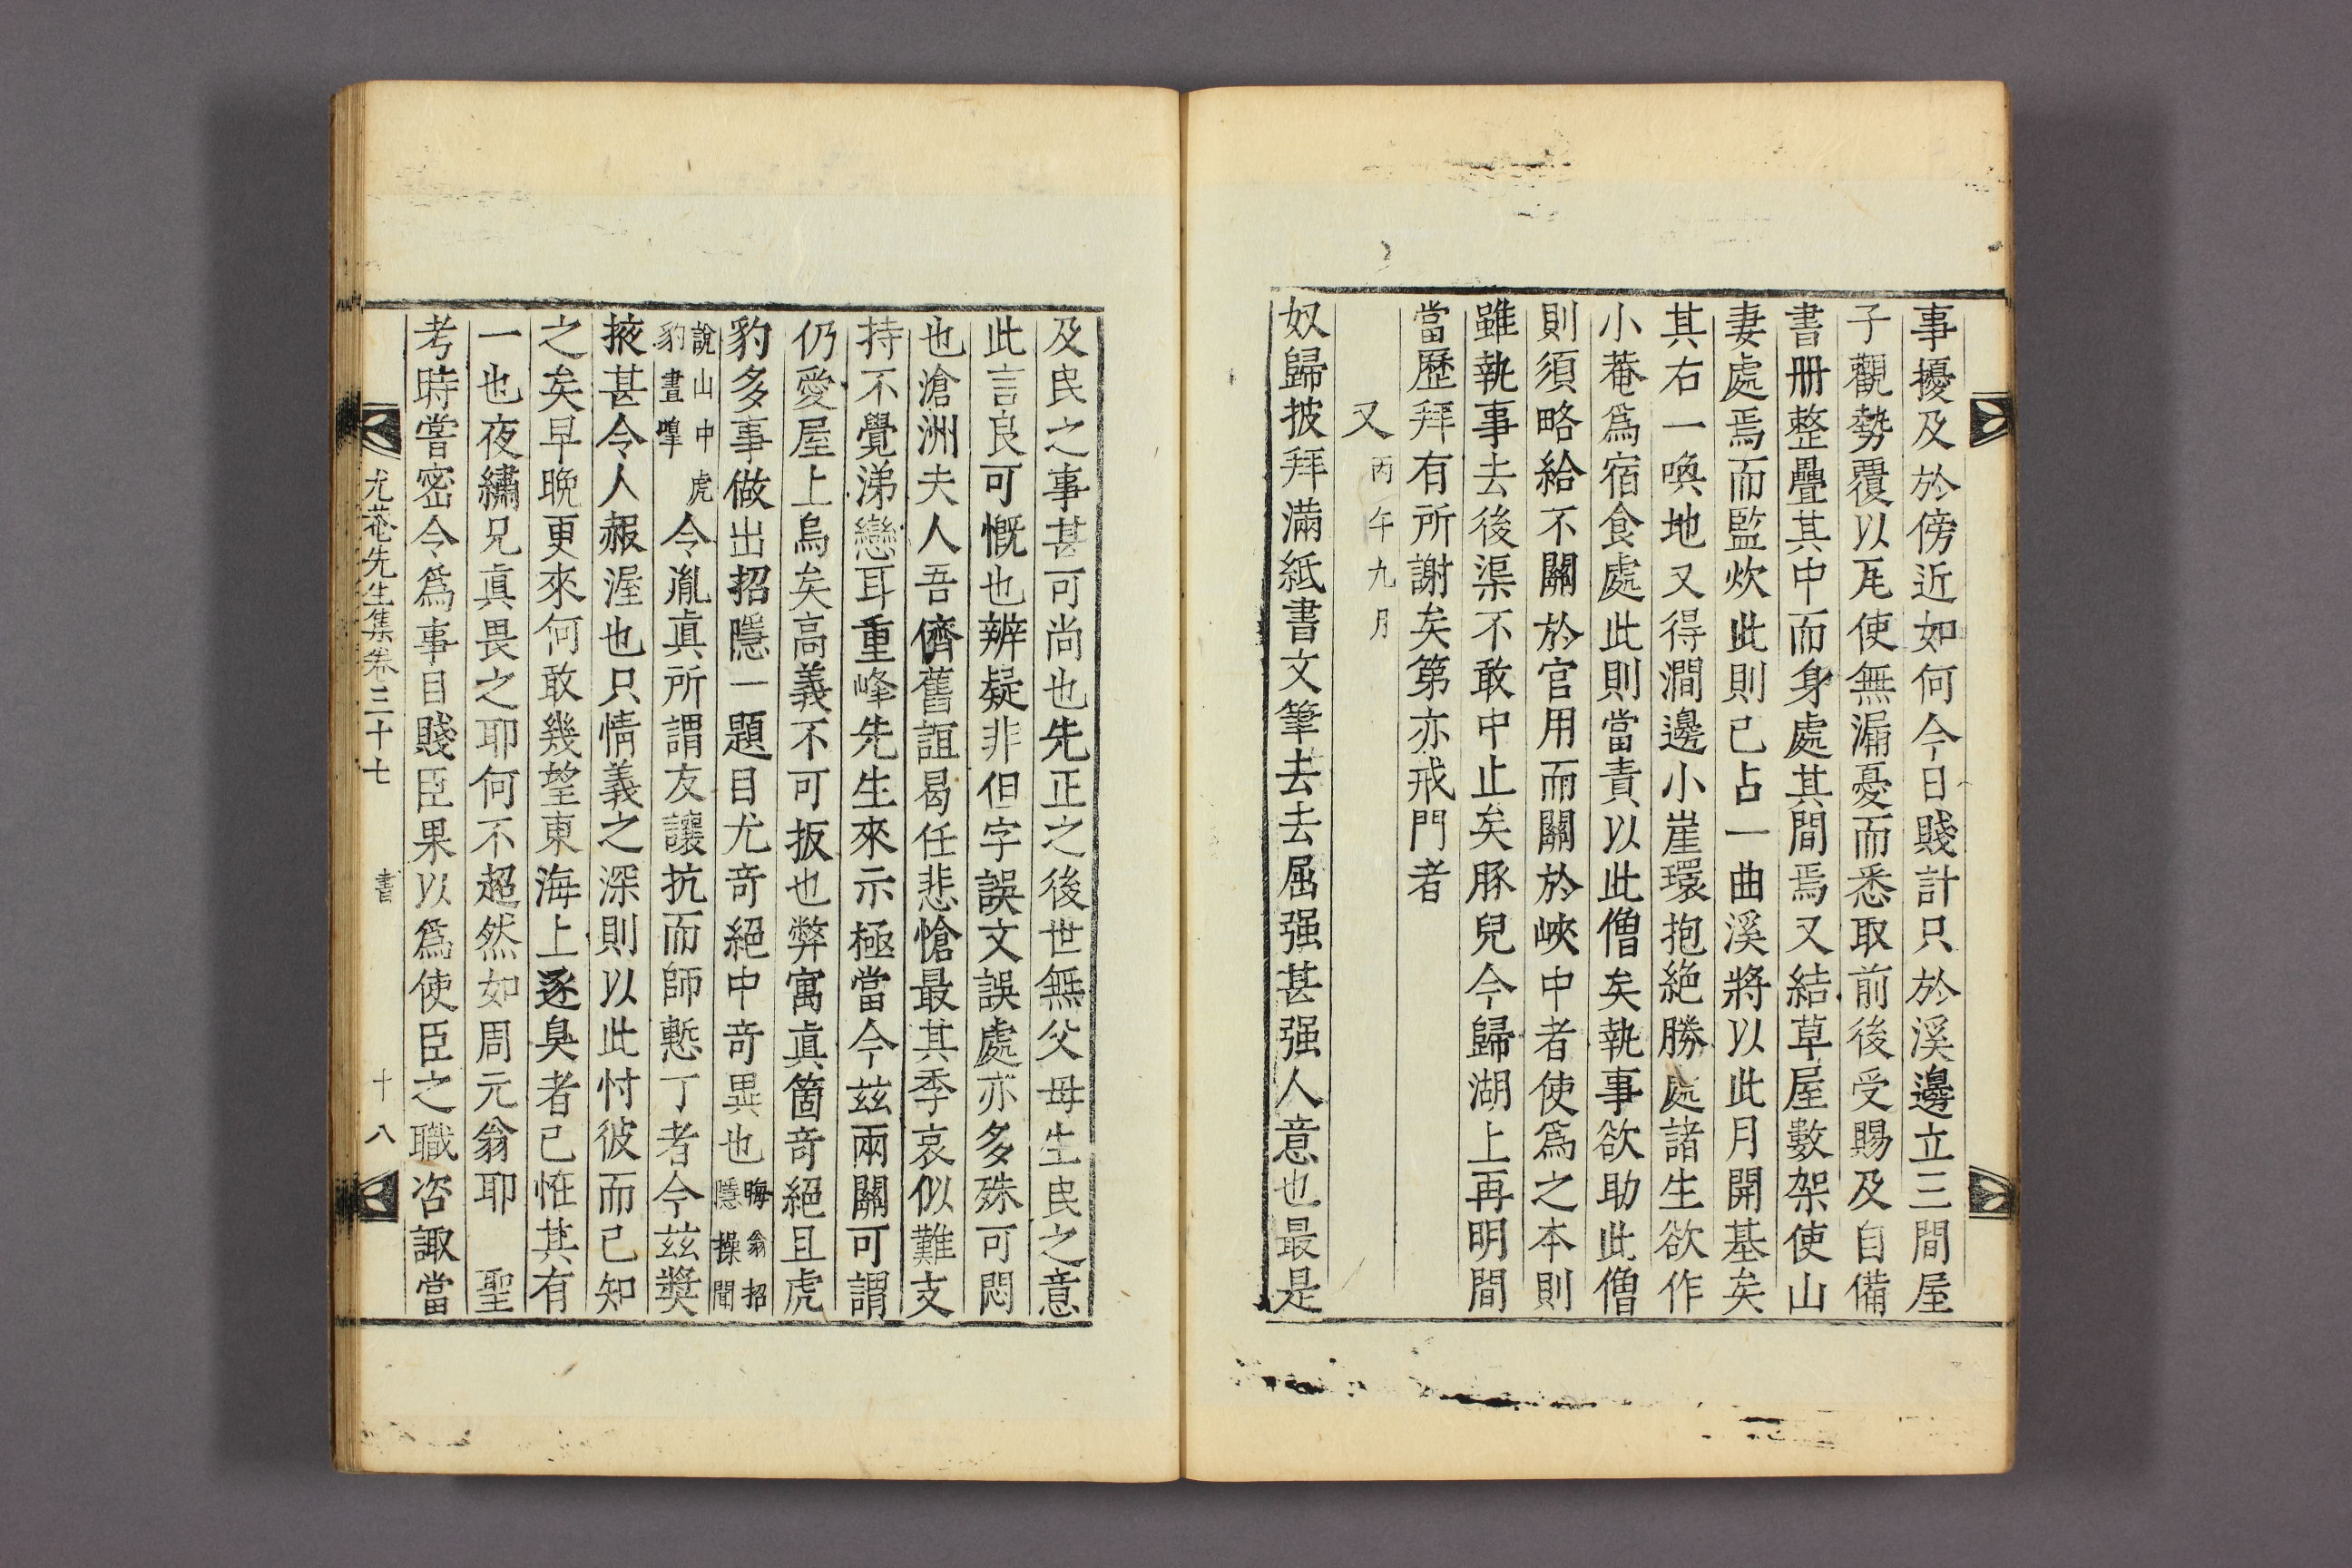 事擾及於傍近如何今日賤計只於溪邊立三間屋
子觀勢覆以瓦使無漏憂而悉取前後受賜及自備
書冊整疊其中而身處其間焉又結草屋數架使山
妻處焉而監炊此則已占一曲溪將以此月開基矣
其右一喚地又得澗邊小崖環抱絶勝處諸生欲作
小菴爲宿食處此則當責以此僧矣執事欲助此僧
則須略給不關於官用而關於峽中者使爲之本則
雖執事去後渠不敢中止矣豚兒今歸湖上再明間
當歷拜有所謝矣第亦戒門者
又丙午九月
奴歸披拜滿紙書文筆去去屈强甚强人意也最是
及民之事甚可尚也先正之後世無父母生民之意
此言良可慨也辨疑非但字誤文誤處亦多殊可悶
也滄洲夫人吾儕舊誼曷任悲愴最其季哀似難支
持不覺涕戀耳重峰先生來示極當今玆兩關可謂
仍愛屋上烏矣高義不可扳也弊寓眞箇奇絕且虎
豹多事做出招隱一題目尤奇絕中奇異也晦翁招隱操聞
說山中虎豹晝嘷令胤眞所謂友讓抗而師慙丁者今玆奬
掖甚令人赧渥也只情義之深則以此忖彼而已知
之矣早晩更來何敢幾望東海上逐臭者已恠其有
一也夜繡兄眞畏之耶何不超然如周元翁耶 聖
考時嘗密令爲事目賤臣果以爲使臣之職咨諏當
尤菴先生集卷三十七 書 十八